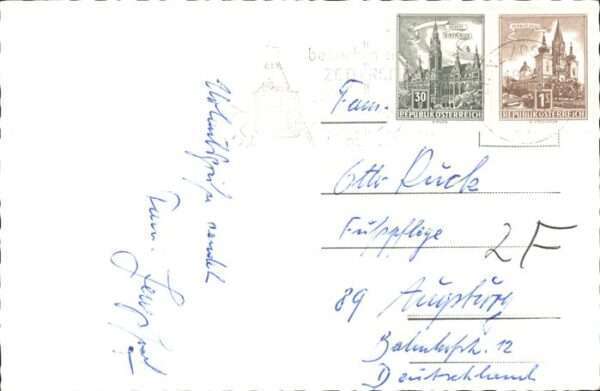 Urlaubsgrüße sendet
Fam.
30
REPUBLIK ÖSTERREICH
1S
REPUBLIK ÖSTERREICH
Fam.
Otto Ruck
Fußpflege
2F
89 Augsburg
Bahnhofstr. 12
Deutschland